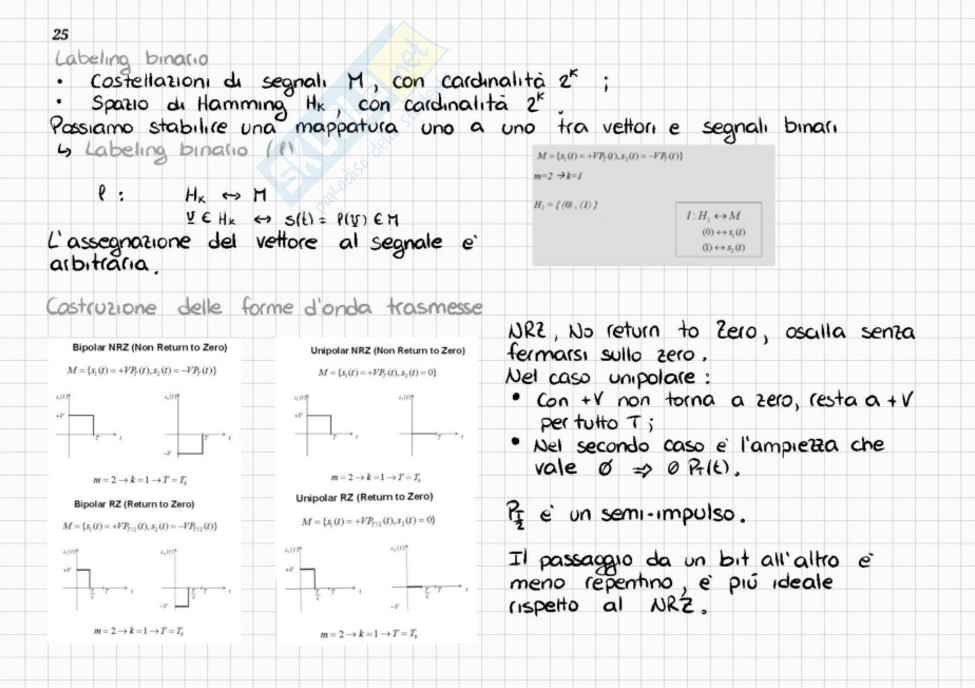 25
Labeling binario
• Costellazioni di segnali M, con cardinalità 2^K ;
• Spazio di Hamming H_K, con cardinalità 2^K.
Possiamo stabilire una mappatura uno a uno tra vettori e segnali binari
↳ Labeling binario (ℓ)
ℓ : H_K ↔ M
v ∈ H_K ↔ s(t) = ℓ(v) ∈ M
L'assegnazione del vettore al segnale è
arbitraria.
M = {s₁(t) = +VP_T(t), s₂(t) = −VP_T(t)}
m=2 → k=1
H₁ = { (0) , (1) }
l : H₁ ↔ M
(0) ↔ s₁(t)
(1) ↔ s₂(t)
Costruzione delle forme d'onda trasmesse
Bipolar NRZ (Non Return to Zero)
M = {s₁(t) = +VP_T(t), s₂(t) = −VP_T(t)}
s₁(t)
+V
T
t
s₂(t)
-V
T
t
m = 2 → k = 1 → T = T_b
Unipolar NRZ (Non Return to Zero)
M = {s₁(t) = +VP_T(t), s₂(t) = 0}
s₁(t)
+V
T
t
s₂(t)
T
t
m = 2 → k = 1 → T = T_b
Bipolar RZ (Return to Zero)
M = {s₁(t) = +VP_T/2(t), s₂(t) = −VP_T/2(t)}
s₁(t)
+V
T
t
s₂(t)
-V
T
t
m = 2 → k = 1 → T = T_b
Unipolar RZ (Return to Zero)
M = {s₁(t) = +VP_T/2(t), s₂(t) = 0}
s₁(t)
+V
T
t
s₂(t)
-V
T
t
m = 2 → k = 1 → T = T_b
NRZ, No return to Zero, oscilla senza
fermarsi sullo zero.
Nel caso unipolare :
• Con +V non torna a zero, resta a +V
per tutto T ;
• Nel secondo caso è l'ampiezza che
vale 0 ⇒ 0 P_T(t).
P_T/2 è un semi-impulso.
Il passaggio da un bit all'altro è
meno repentino, è più ideale
rispetto al NRZ.